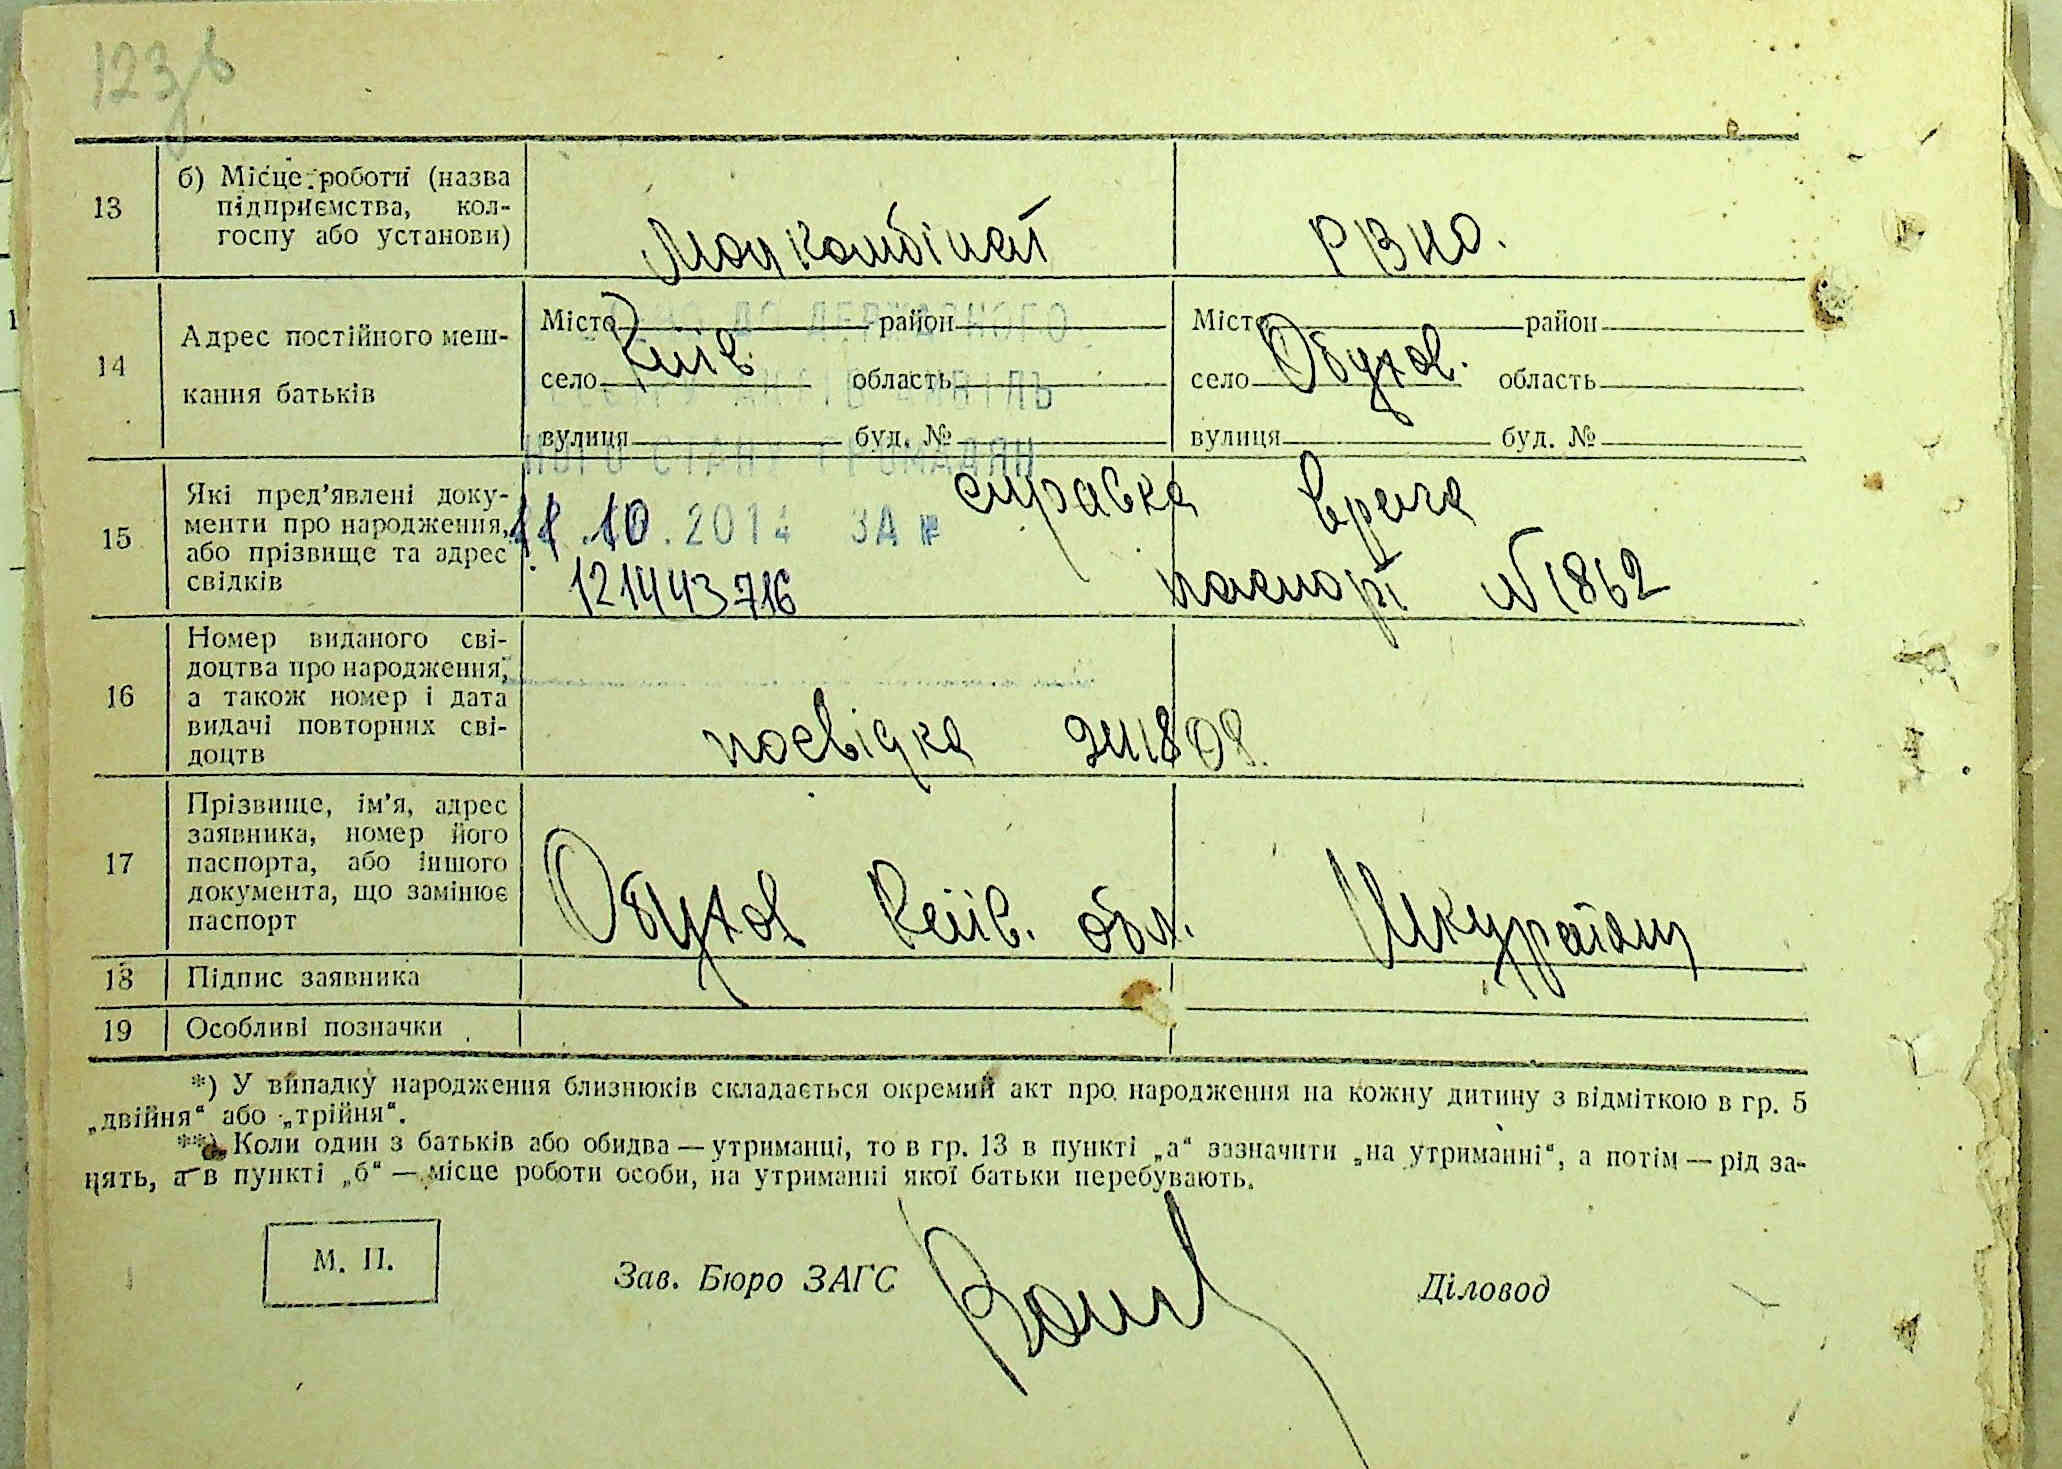 123
13
б) Місце роботи (назва
підприємства, кол-
госпу або установи)
РВНО.
14
Адрес постійного меш-
кання батьків
Місто район
Київ.
село область
вулиця буд. №
Місто район
Обухов.
село область
вулиця буд. №
ДО ДЕРЖАВНОГО
РЕЄСТРУ АКТІВ ЦИВІЛЬ
НОГО СТАНУ ГРОМАДЯН
11.10.2014 ЗА №
121443716
15
Які пред’явлені доку-
менти про народження,
або прізвище та адрес
свідків
справка врача
паспорт №1862
16
Номер виданого сві-
доцтва про народження,
а також номер і дата
видачі повторних сві-
доцтв
посвідка
17
Прізвище, ім’я, адрес
заявника, номер його
паспорта, або іншого
документа, що замінює
паспорт
Обухов Київ. обл.
18
Підпис заявника
19
Особливі позначки
*) У випадку народження близнюків складається окремий акт про народження на кожну дитину з відміткою в гр. 5
„двійня“ або „трійня“.
**) Коли один з батьків або обидва — утриманці, то в гр. 13 в пункті „а“ зазначити „на утриманні“, а потім — рід за-
нять, а в пункті „б“ — місце роботи особи, на утриманні якої батьки перебувають.
М. П.
Зав. Бюро ЗАГС
Діловод